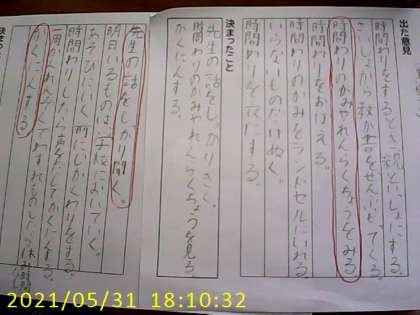 出た意見
時間わりをするとき親といっしょにする。
時間わりのかみやれんらくちょうをみる
時間わりをおぼえる。
時間わりのかみをランドセルにいれる
いらないものだけぬく。
時間わりを夜にする。
決まったこと
先生の話をしっかりきく。
時間わりのかみやれんらくちょうを見る。
かくにんする。
先生の話をしっかり聞く。
明日いるものは学校においていく。
あそびにいく前にじかんわりをする。
時間わりしたら声をだしてかくにんする。
かくにんする
決まった
2021/05/31 18:10:32